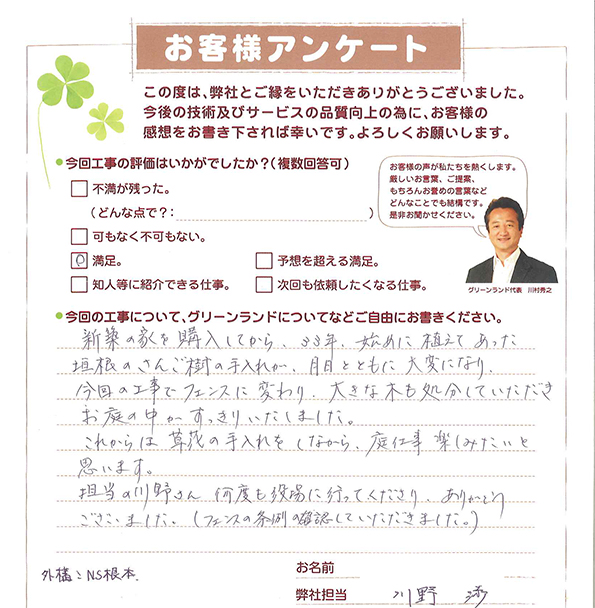 お客様アンケート
この度は、弊社とご縁をいただきありがとうございました。
今後の技術及びサービスの品質向上の為に、お客様の
感想をお書き下されば幸いです。よろしくお願いします。
●今回工事の評価はいかがでしたか?(複数回答可)
□不満が残った。
(どんな点で?: )
□可もなく不可もない。
□満足。
□予想を超える満足。
□知人等に紹介できる仕事。
□次回も依頼したくなる仕事。
お客様の声が私たちを熱くします。
厳しいお言葉、ご提案、
もちろんお誉めの言葉など
どんなことでも結構です。
是非お聞かせください。
グリーンランド代表 川村秀之
●今回の工事について、グリーンランドについてなどご自由にお書きください。
新築の家を購入してから、33年、始めに植えてあった
垣根のさんご樹の手入れが、月日とともに大変になり、
今回の工事でフェンスに変わり、大きな木も処分していただき
お庭の中がすっきりいたしました。
これからは草花の手入れをしながら、庭仕事楽しみたいと
思います。
担当の川野さん 何度も役場に行ってくださり、ありがとう
ございました。(フェンスの条例の確認していただきました。)
外構:NS根本.
お名前
弊社担当 川野